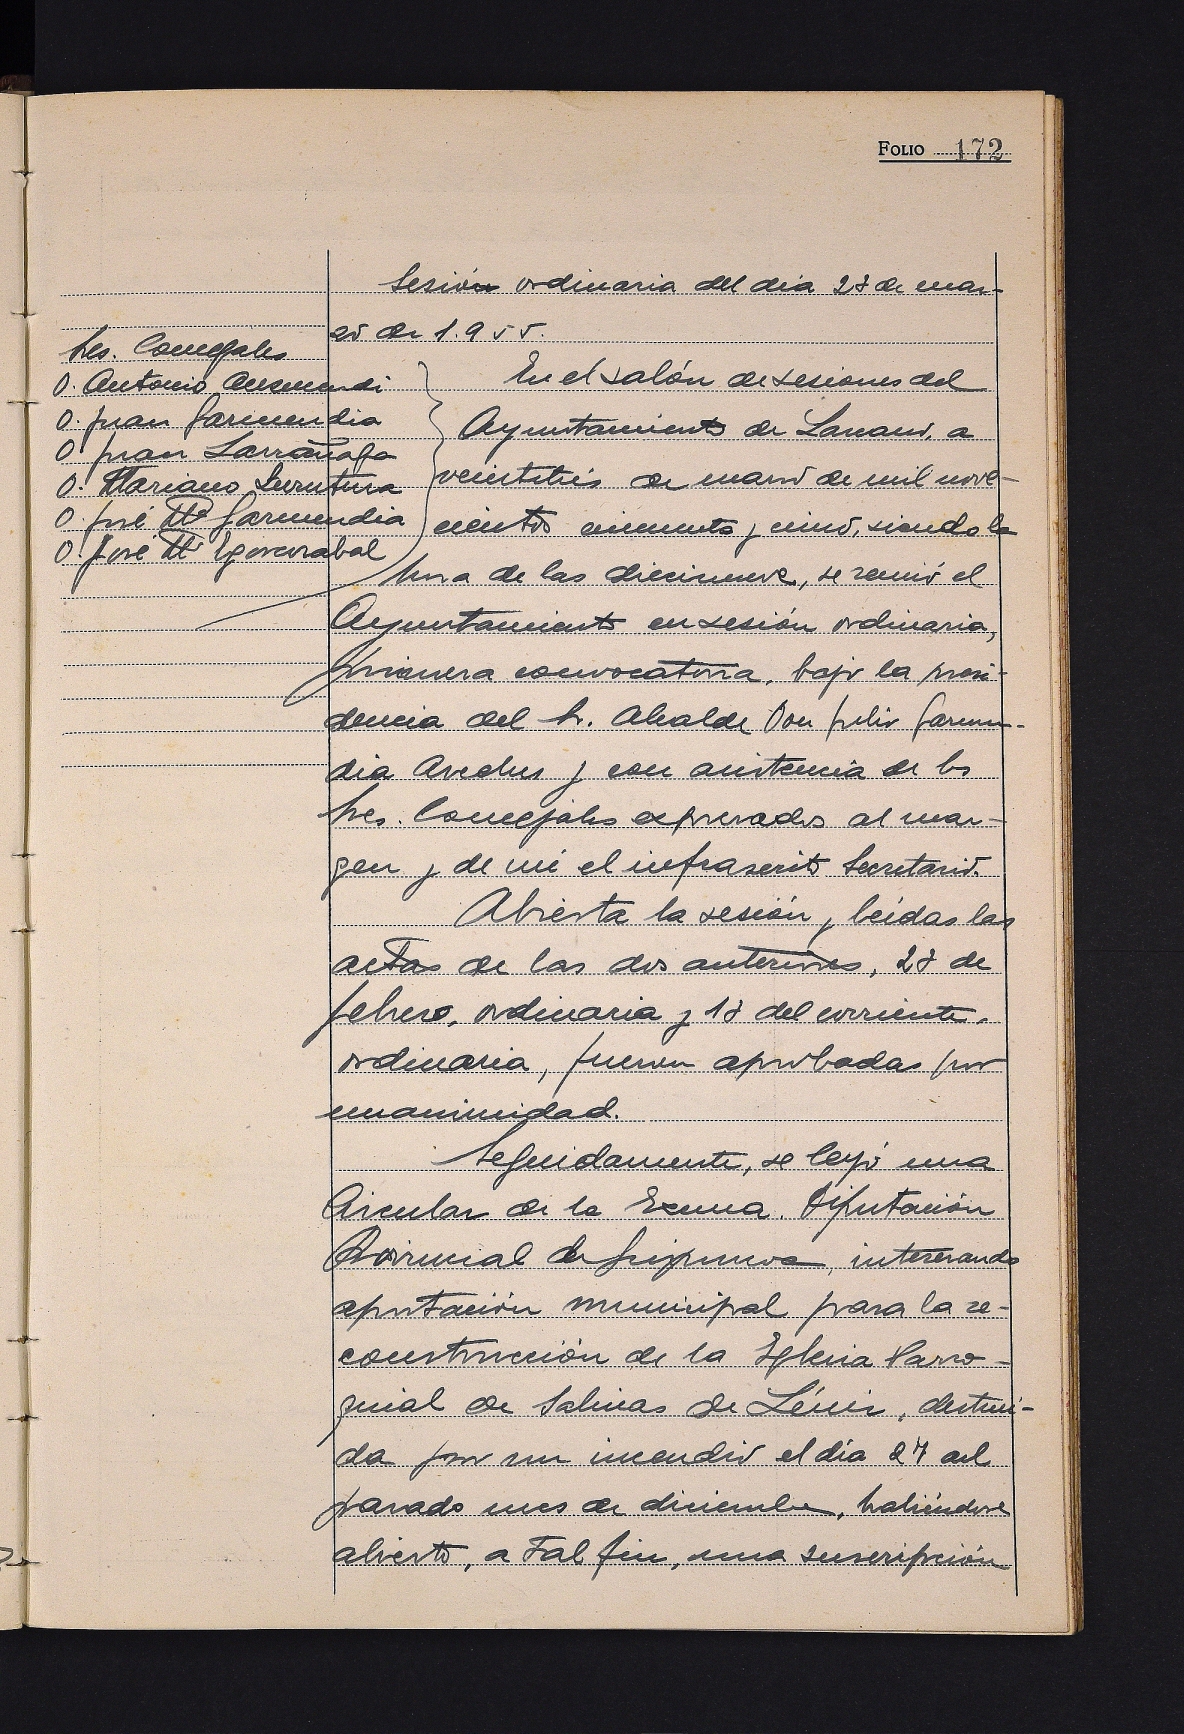 FOLIO 172
Sesión ordinaria del dia 23 de mar-
zo de 1.955.
Sres. Concejales
D. Antonio Ausmendi
D. Juan Garmendia
D. Juan Larrañaga
D. Mariano
D. José Mª Garmendia
D. José Mª Egorcorabal
En el salón de sesiones del
Ayuntamiento de, a
veintitrés de marzo de mil nove-
cientos cincuenta y cinco, siendo la
hora de las diecinueve, se reunió el
Ayuntamiento en sesión ordinaria,
primera convocatoria, bajo la presi-
dencia del Sr. Alcalde Don Julio Garmen-
dia y con asistencia de los
Sres. Concejales expresados al mar-
gen y de mi el infrascrito Secretario.
Abierta la sesión y leídas las
actas de las dos anteriores, 23 de
febrero, ordinaria y 13 del corriente,
ordinaria, fueron aprobadas por
unanimidad.
Seguidamente, se leyó una
Circular de la Excma. Diputación
Provincial de Guipuzcoa, interesando
aportación municipal para la re-
construcción de la Iglesia Parro-
quial de Salinas de Léniz, destrui-
da por un incendio el día 27 del
pasado mes de diciembre, habiéndose
abierto, a tal fin, una suscripción